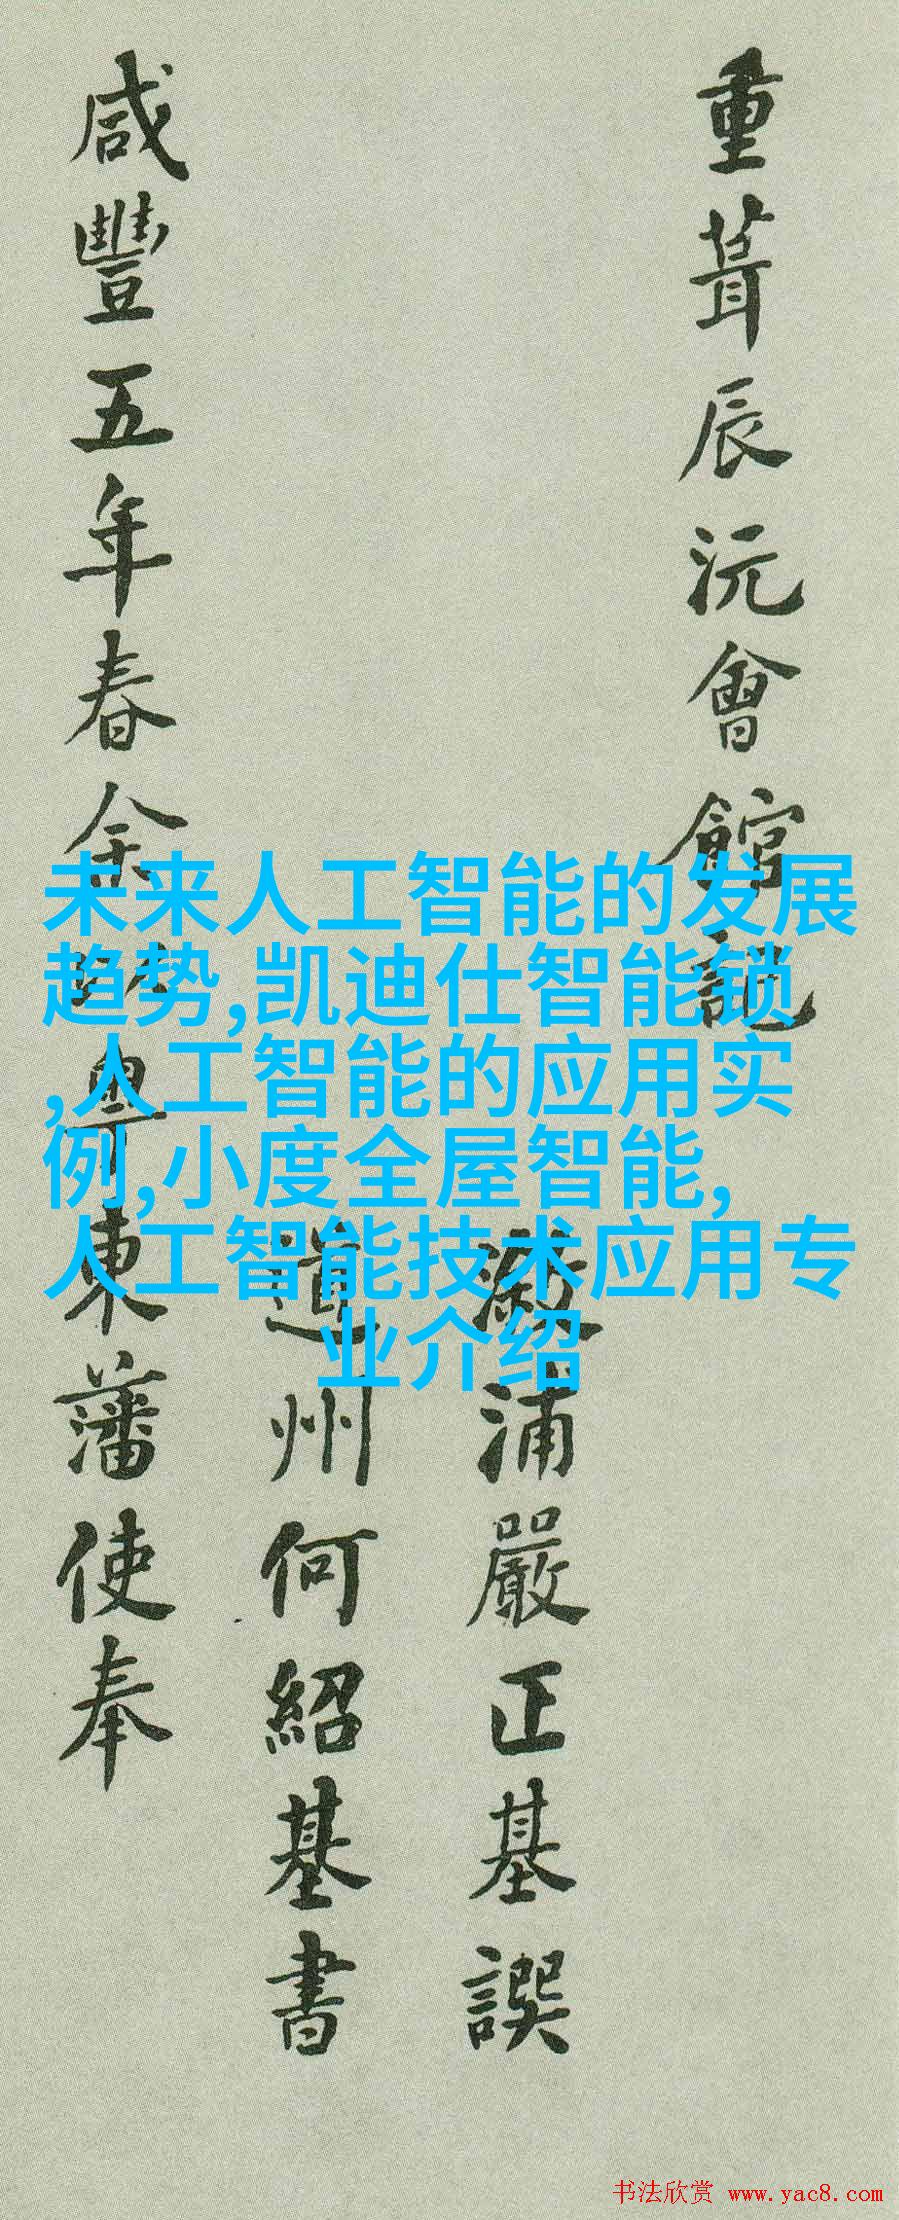 重葺辰沅會館記
漵浦嚴正基譔
道州何紹基書
咸豐五年春余以粤東藩使奉
未来人工智能的发展
趋势,凯迪仕智能锁
,人工智能的应用实
例,小度全屋智能,
人工智能技术应用专
业介绍
书法欣赏 www.yac8.com